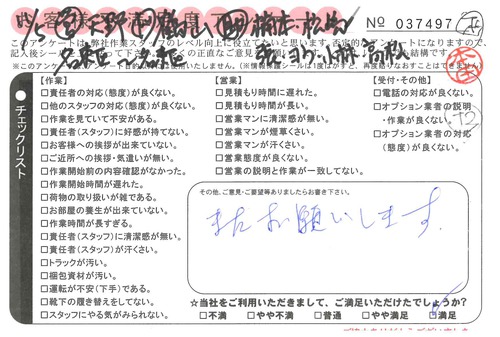 No 037497
このアンケートは、弊社作業スタッフのレベル向上に役立てたいと思います。
チェックリスト
【作業】
□責任者の対応(態度)が良くない。
□他のスタッフの対応(態度)が良くない。
□作業を見ていて不安がある。
□責任者(スタッフ)に好感が持てない。
□お客様への挨拶が出来ていない。
□ご近所への挨拶・気遣いが無い。
□作業開始前の内容確認がなかった。
□作業開始時間が遅れた。
□荷物の取り扱いが雑である。
□お部屋の養生が出来ていない。
□作業時間が長すぎる。
□責任者(スタッフ)に清潔感が無い。
□責任者(スタッフ)が汗くさい。
□トラックが汚い。
□梱包資材が汚い。
□運転が不安(下手)である。
□靴下の履き替えをしてない。
□スタッフにやる気がみられない。
【営業】
□見積もり時間に遅れた。
□見積もり時間が長い。
□営業マンに清潔感が無い。
□営業マンが煙草くさい。
□営業マンが汗くさい。
□営業態度が良くない。
□営業の説明と作業が一致してない。
【受付・その他】
□電話の対応が良くない。
□オプション業者の説明
・作業が良くない。
□オプション業者の対応
(態度)が良くない。
その他、ご意見・ご要望等ありましたらお書き下さい。
またお願いします。
☆当社をご利用いただきまして、ご満足いただけたでしょうか?
□不満 □やや不満 □普通 □やや満足 □満足